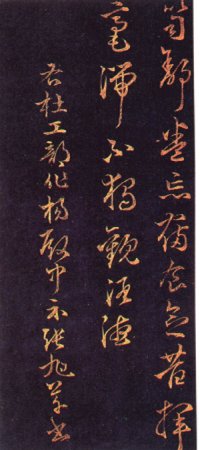 笥舒卷忘寢食念昔揮
毫端不獨觀酒德
右杜工部作楊殿中示張旭草書